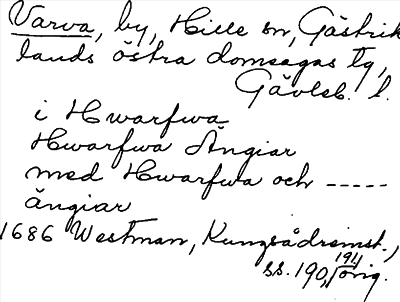 Varva, by, Hille sn, Gästrik
lands östra domsagas tg,
Gävleb. l.
i Hwarfwa
Hwarfwa Ängiar
med Hwarfwa och -----
ängiar
1686 Westman, Kungsådremst.,
ss. 190, 191 orig.